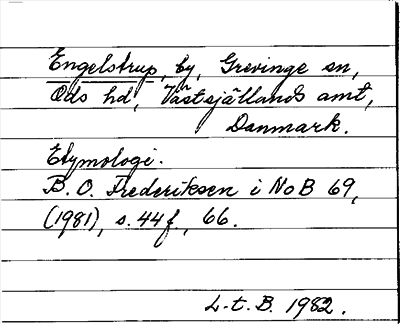 Engelstrup, by, Grevinge sn,
Ods hd, Västsjällands amt,
Danmark.
Etymologi.
B. O. Frederiksen i NoB 69,
(1981), s. 44f., 66.
L-t. B. 1982.